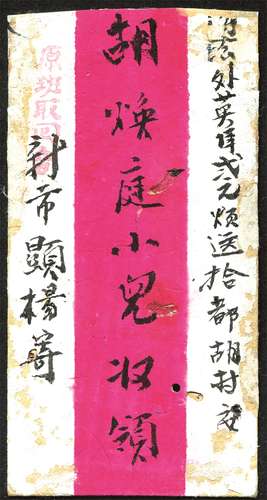 外英洋弍元煩送拾都胡村交
胡煥庭小兒收領
新市顯楊寄
原班取回